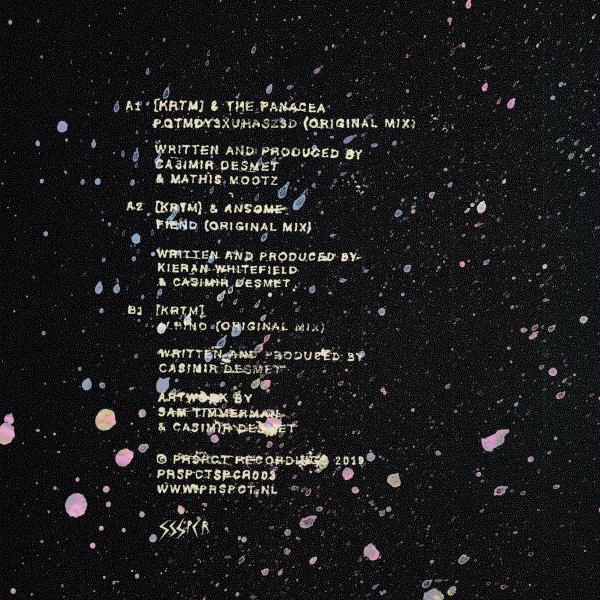 A1 [KRTM] & THE PANACEA
(ORIGINAL MIX)
WRITTEN AND PRODUCED BY
CASIMIR DESMET
& MATHIS MOOTZ
A2 [KRTM] & ANSOME
FIEND (ORIGINAL MIX)
WRITTEN AND PRODUCED BY
KIERAN WHITEFIELD
& CASIMIR DESMET
B1 [KRTM]
(ORIGINAL MIX)
WRITTEN AND PRODUCED BY
CASIMIR DESMET
ARTWORK BY
SAM TIMMERMAN
& CASIMIR DESMET
© PRSPCT RECORDINGS 2019
PRSPCTSPCR003
WWW.PRSPCT.NL